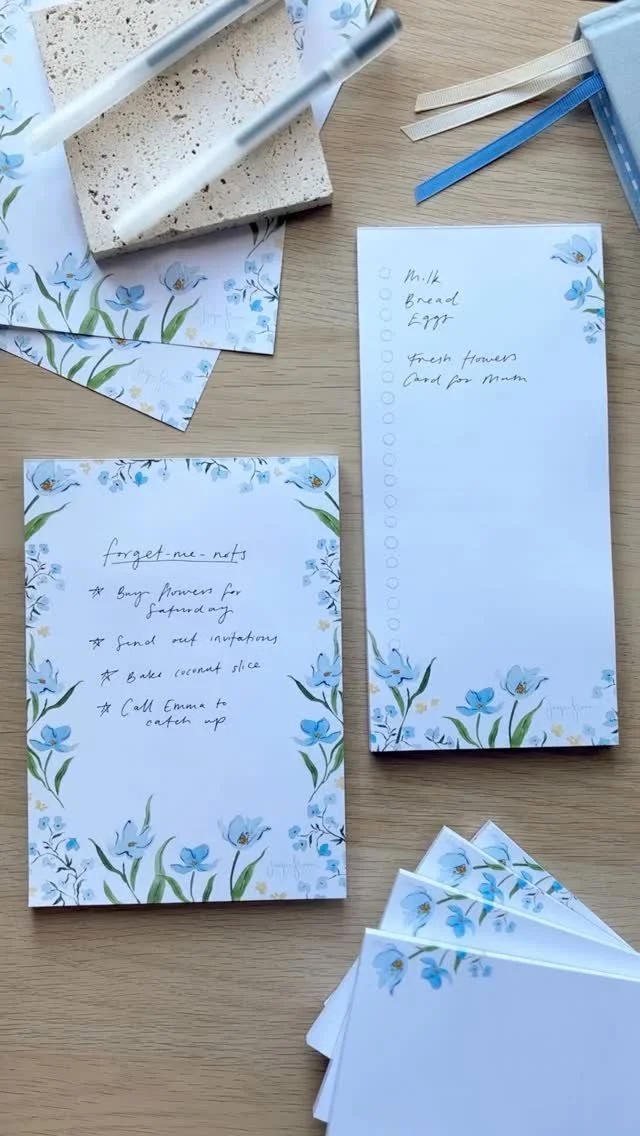 Milk
Bread
Eggs
Fresh flowers
Card for Mum
forget-me-nots
☆ Buy flowers for
Saturday
☆ Send out invitations
☆ Bake coconut slice
☆ Call Emma to
catch up